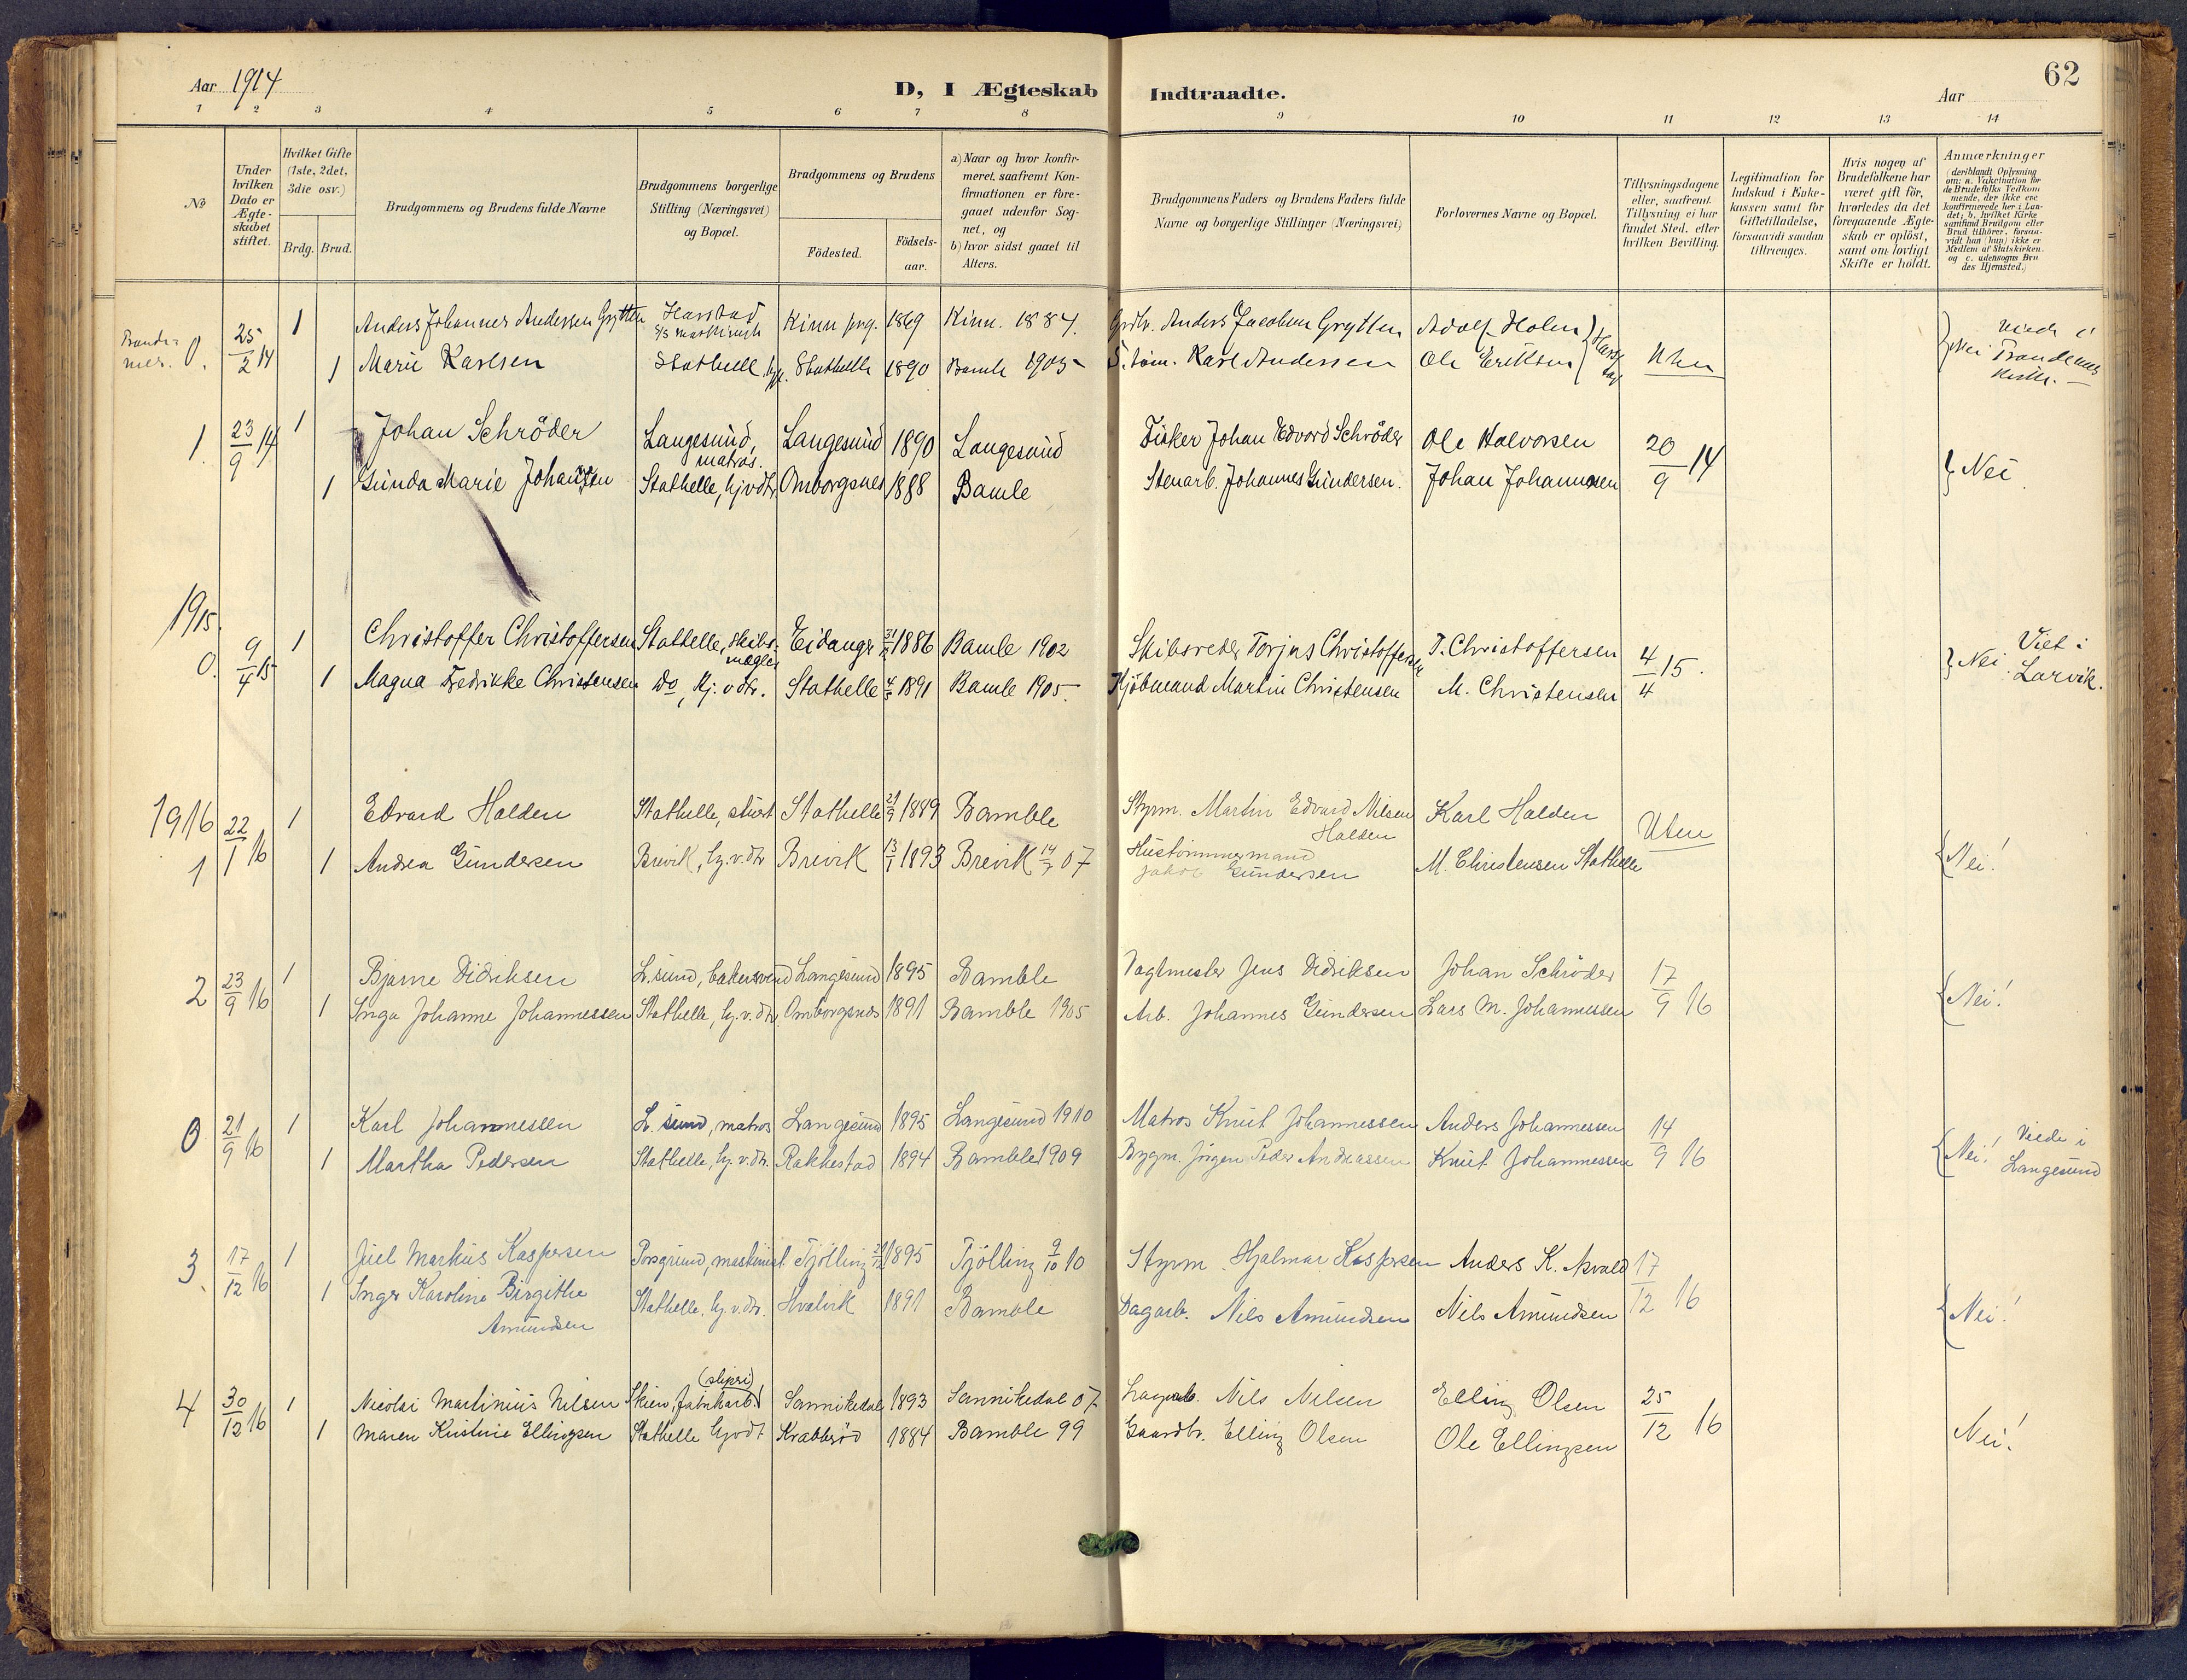 Aar 1914
D, I Ægteskab Indtraadte.
Aar
62
1 2 3 4 5 6 7 8 9 10 11 12 13 14
No
Under hvilken Dato er Ægte-skabet stiftet.
Hvilket Gifte (1ste, 2det, 3die osv.)
Brdg. Brud.
Brudgommens og Brudens fulde Navne
Brudgommens borgerlige Stilling (Næringsvei) og Bopæl.
Brudgommens og Brudens
Fødested.
Fødsels-aar.
a) Naar og hvor konfir-meret, saafremt Kon-firmationen er fore-gaaet udenfor Sog-net, og
b) hvor sidst gaaet til Alters.
Brudgommens Faders og Brudens Faders fulde Navne og borgerlige Stillinger (Næringsvei)
Forlovernes Navne og Bopæl.
Tillysningsdagene eller, saafremt Tillysning ei har fundet Sted, efter hvilken Bevilling.
Legitimation for Indskud i Enke-kassen samt for Giftetilladelse, forsaavidt saadan tiltrænges.
Hvis nogen af Brudefolkene har været gift før, hvorledes da det foregaaende Ægte-skab er opløst, samt om lovligt Skifte er holdt.
Anmærkninger (deriblandt Oplysning om: a. Vakcination for de Brudefolks Vedkom mende, der ikke ere konfirmerede her i Lan-det; b. hvilket Kirke samfund Brudgom eller Brud tilhører, forsaa-vidt han (hun) ikke er Medlem af Statskirken. og c. udensogns Bru des Hjemsted.)
0. 25/2 14 1 Anders Johannes Andersen Grytten Harstad Kinn prg. 1869 Kinn. 1884. Grdbr. Anders Jacobsen Grytten Adolf Holen
1 Marie Karlsen Stathelle Stathelle 1890 Bamle 1905 Karl Andersen Ole Eriksen Uten Nei Viede i Trondenes Kirke.
1. 23/9 14. 1 Johan Schrøder Langesund, matros. Langesund 1890 Langesund Fisker Johan Edvard Schrøder Ole Halvorsen 20/9 14
1 Gunda Marie Johansen Stathelle, hjvdtr Omborgsnes 1888 Bamle Stenarb. Johannes Gundersen. Johan Johannessen Nei
1915.
0. 9/4 15 1 Christoffer Christoffersen Stathelle, skibs-mægler Eidanger 1886 Bamle 1902 Skibsreder Torjus Christoffersen T. Christoffersen 4/4 15.
1 Magna Fredrikke Christensen Do, hj. v dtr. Stathelle 1891 Bamle 1905. Kjøbmand Martin Christensen M. Christensen Nei Viet i Larvik.
1916
1 22/1 16 1 Edvard Halden Stathelle, stuert Stathelle 21/9 1889 Bamble Styrm. Martin Edvard Nilsen Halden Karl Halden Uten
1 Andrea Gundersen Brevik, hj.v.dtr Brevik 13/1 1893 Brevik 14/7 07 Hustømmermand Jakob Gundersen M. Christensen Stathelle Nei!
2 23/9 16 1 Bjarne Didriksen L.sund, bakersvend Langesund 1895 Bamble Vagtmester Jens Didriksen Johan Schrøder 17/9 16
1 Inga Johanne Johannessen Stathelle, hj.v.dtr. Omborgsnes 1891 Bamble 1905 Arb. Johannes Gundersen Lars M. Johannessen Nei!
0 21/9 16 1 Karl Johannessen L.sund, matros Langesund 1895 Langesund 1910 Matros Knut Johannessen Anders Johannessen 14/9 16
1 Martha Pedersen Stathelle, hj.v.dtr. Rakkestad 1894 Bamble 1909 Bygm. Jørgen Peder Andreassen Knut Johannessen Nei! Viede i Langesund
3. 17/12 16 1 Juel Markus Kaspersen Porsgrund, maskinist Tjølling 1895 Tjølling 9/10 10 Styrm. Hjalmar Kaspersen Anders K. Asvald 17/12 16
1 Inger Karoline Birgithe Amundsen Stathelle, hj.v.dtr. Hvalvik 1891 Bamble Dagarb. Nils Amundsen Nils Amundsen Nei!
4 30/12 16 1 Nicolai Martinius Nilsen Skien, fabrikarb. (sliperi) Sannikedal 1893 Sannikedal 07 Nils Nilsen Elling Olsen 25/12 16
1 Maren Kristine Ellingsen Stathelle hjvdt Krabberød 1884 Bamble 99 Gaardbr. Elling Olsen Ole Ellingsen Nei!